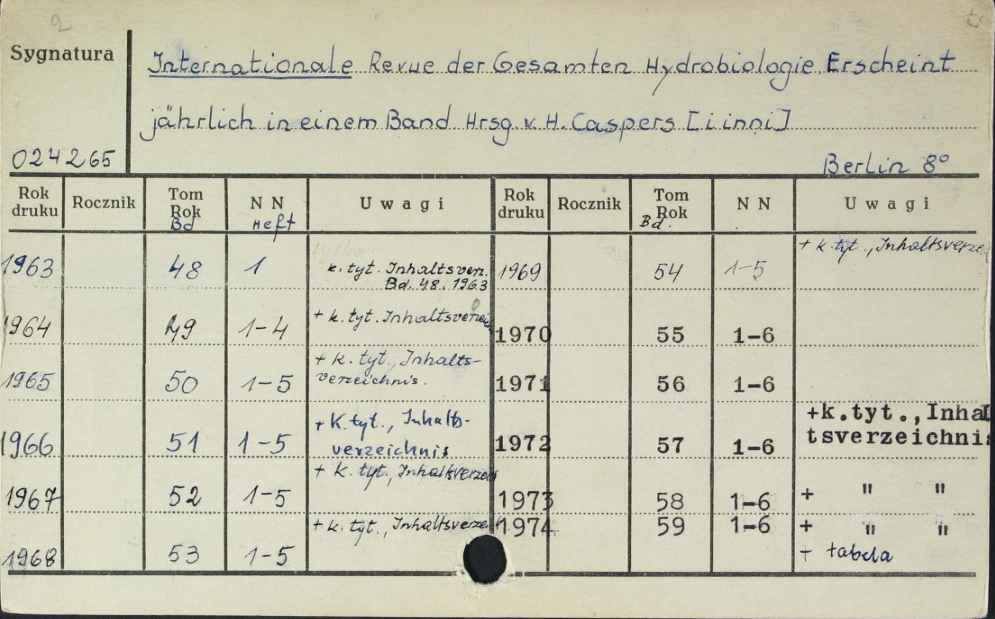 Sygnatura
Internationale Revue der Gesamten Hydrobiologie. Erscheint
jährlich in einem Band Hrsg. v. H. Caspers [i inni]
024265
Berlin 8°
Rok druku Rocznik Tom Rok Bd N N Heft Uwagi Rok druku Rocznik Tom Rok Bd. N N Uwagi
1963 48 1 k. tyt. Inhaltsverz. Bd. 48. 1963
1964 49 1-4 + k. tyt. Inhaltsverzei
1965 50 1-5 + k. tyt., Inhalts-
verzeichnis.
1966 51 1-5 + K. tyt., Inhalts-
verzeichnis
1967 52 1-5 + k. tyt., Inhaltsverzei
1968 53 1-5 + k. tyt., Inhaltsverze
1969 54 1-5 + k. tyt., Inhaltsverze
1970 55 1-6
1971 56 1-6
1972 57 1-6 +k.tyt.,Inhal
tsverzeichnis
1973 58 1-6 + " "
1974 59 1-6 + " "
+ tabela